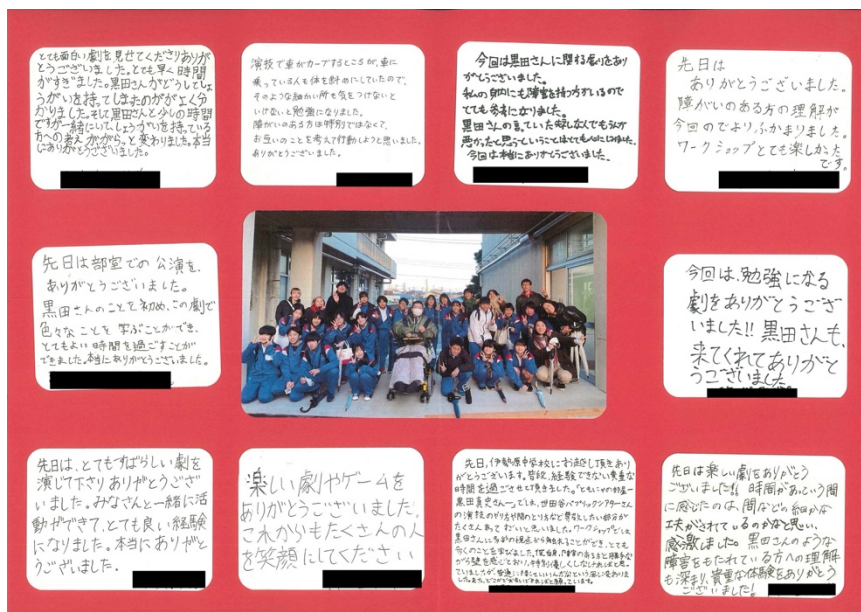 とても面白い劇を見せてくださりありが
とうございました。とても早く時間
がすぎました。黒田さんがどうしてしょ
うがいを持ってしまったのかがよく分
かりました。そして黒田さんと少しの時間
ですが一緒にいて、しょうがいを持っている
方への考えがガラっと変わりました。本当
にありがとうございました。
演技で車がカーブするところが、車に
乗っている人も体を斜めにしていたので、
そのような細かい所も気をつけないと
いけないと勉強になりました。
障がいのある方は特別ではなくて、
お互いのことを考えて行動しようと思いました。
ありがとうございました。
今回は黒田さんに関する劇をあり
がとうございました。
私の身内にも障害を持つ方がいるので
とても参考になりました。
黒田さんの言っていた
悪かったと思うということはとても心にしみました。
今回は本当にありがとうございました。
先日は
ありがとうございました。
障がいのある方の理解が
今回のでより、ふかまりました。
ワークショップとても楽しかった
です。
先日は部室での公演を、
ありがとうございました。
黒田さんのことを初め、この劇で
色々なことを学ぶことができ、
とてもよい時間を過ごすことが
できました。本当にありがとうございました。
今回は、勉強になる
劇をありがとうござ
いました!! 黒田さんも、
来てくれてありがと
うございました
先日は、とてもすばらしい劇を
演じて下さりありがとうござ
いました。みなさんと一緒に活
動ができて、とても良い経験
になりました。本当にありがと
うございました。
楽しい劇やゲームを
ありがとうございました。
これからもたくさんの人
を笑顔にしてください
先日、伊勢原中学校にお越し頂きあり
がとうございます。普段、経験できない貴重な
時間を過ごさせて頂きました。「ともにゃの部屋ー
黒田真史さんー」では、世田谷パブリックシアターさん
の演技のやり方や間のとり方など真似したい部分が
たくさんあってすごいと思いました。ワークショップでは
黒田さんに
多くのことを学びました。
先日は楽しい劇をありがとう
ございました!! 時間があっという間
に感じたのは、間などの細かな
工夫がされているのかなと思い、
感激しました。黒田さんのような
障害をもたれている方への理解
も深まり、貴重な体験をありがとう
ございました!